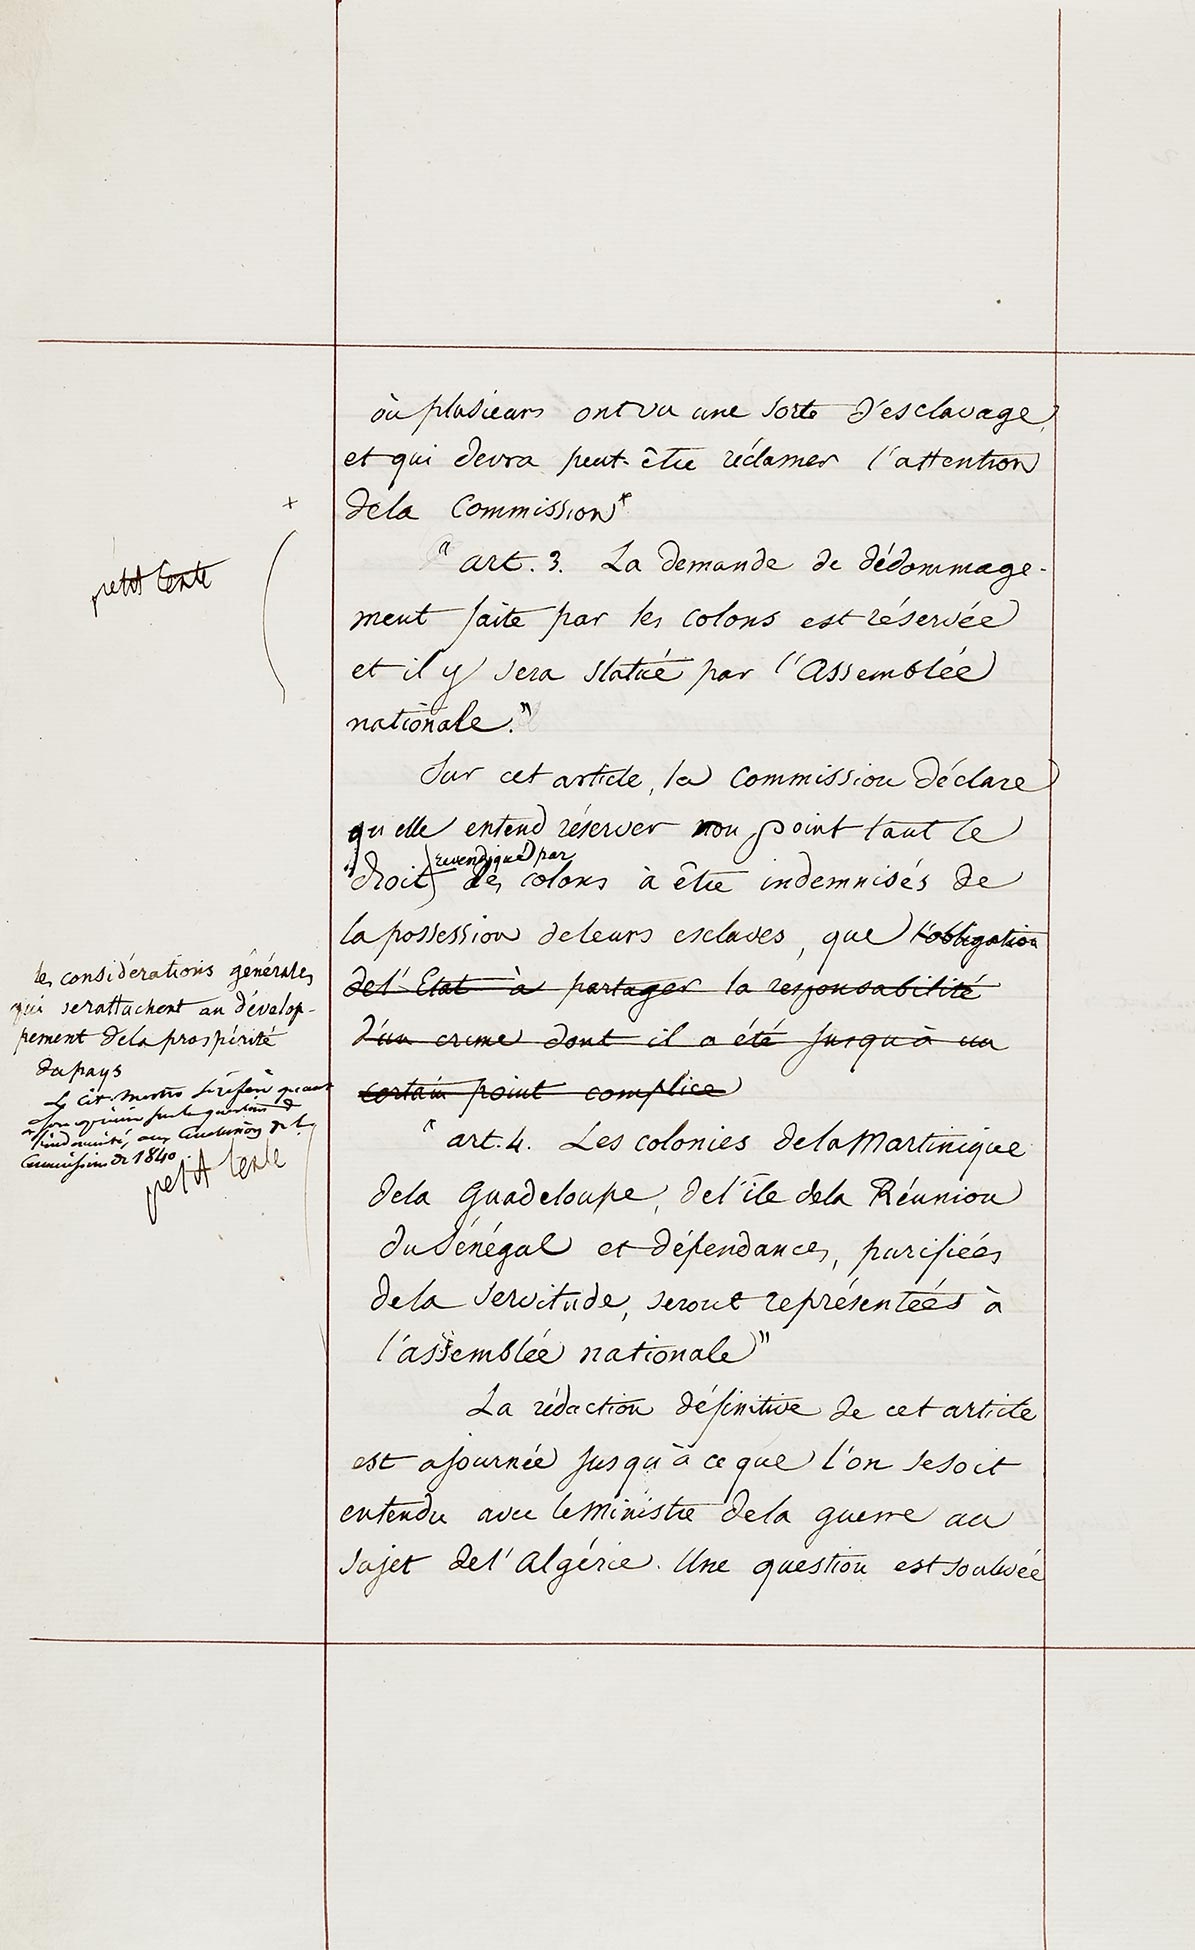 où plusieurs ont vu une sorte d'esclavage,
et qui devra peut-être réclamer l'attention
dela Commission"
+
"art. 3. La demande de dédommage-
petit texte
ment faite par les colons est réservée
et il y sera statué par l'Assemblée
nationale."
Sur cet article, la Commission déclare
qu'elle entend réserver non point tant le
revendiqué par
"droit" des colons à être indemnisés de
la possession deleurs esclaves, que l'obligation
del'Etat à partager la responsabilité
d'un crime dont il a été jusqu'à un
certain point complice
les considérations générales
qui serattachent au dévelop-
pement dela prospérité
du pays
Le Cit. Mestro se réfère quant
à son opinion sur la question d'
indemnité, aux Conclusions de la
Commission de 1840.
petit texte
"art. 4. Les colonies dela Martinique
dela Guadeloupe, del'île dela Réunion
du Sénégal et dépendances, purifiées
dela servitude, seront représentées à
l'assemblée nationale"
La rédaction définitive de cet article
est ajournée jusqu'à ce que l'on sesoit
entendu avec le Ministre dela guerre au
sujet del'Algérie. Une question est soulevée